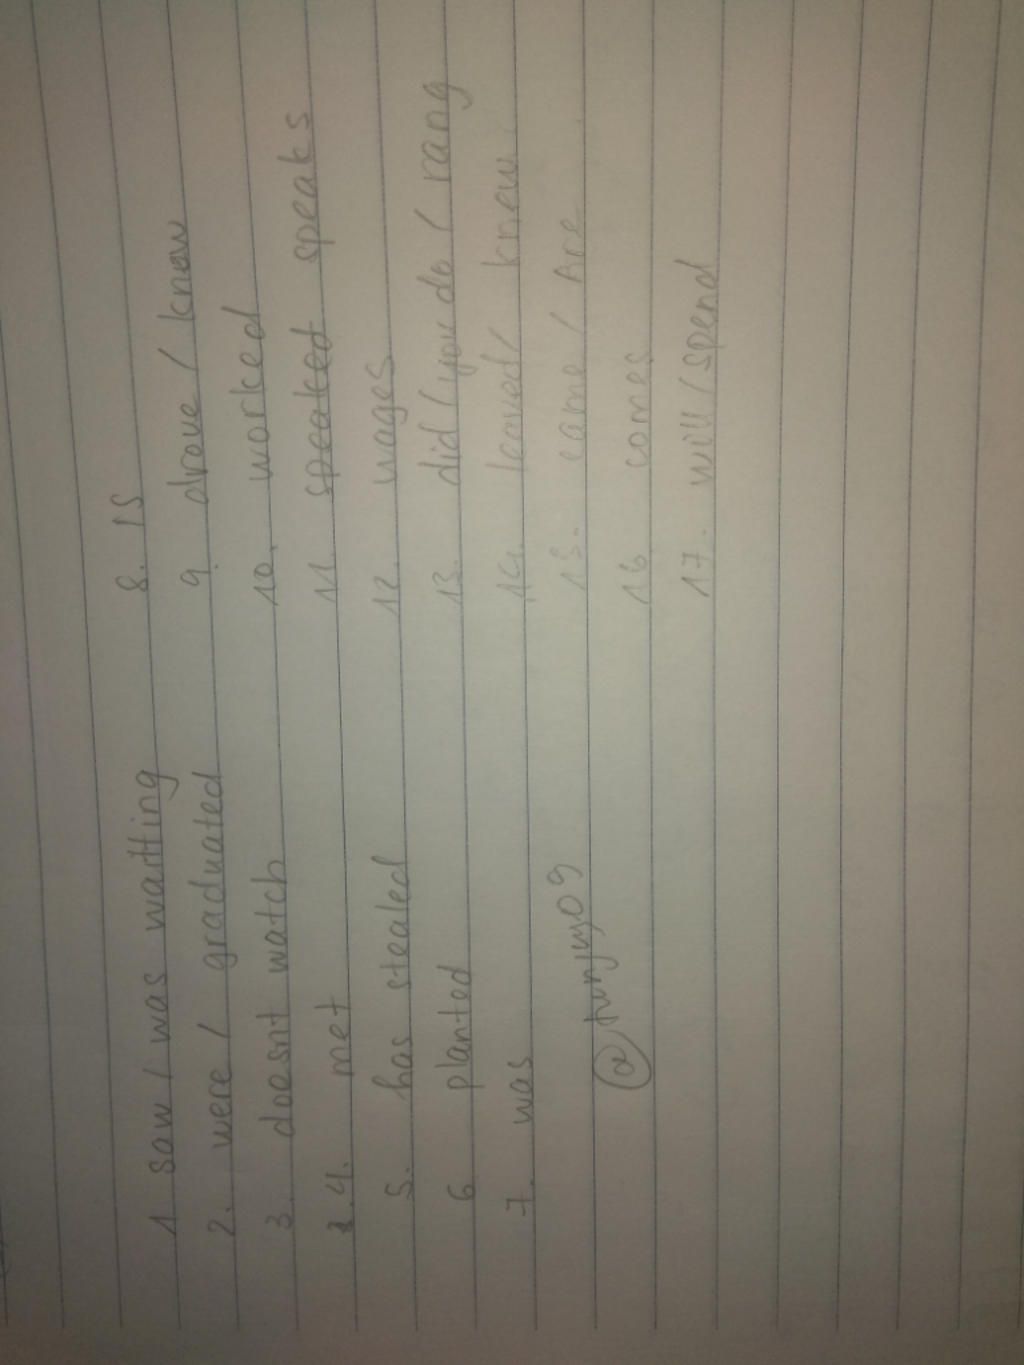 1 saw / was waitting
2. were / graduated
3. doesn't watch
4. met
5. has stealed
6 planted
7. was
@tunjyy09
8. IS
9. drove / know
10. worked
11. speaked speaks
12. wages
13. did / you do / rang
14. leaved / knew
15. came / Are
16 comes
17. will / spend